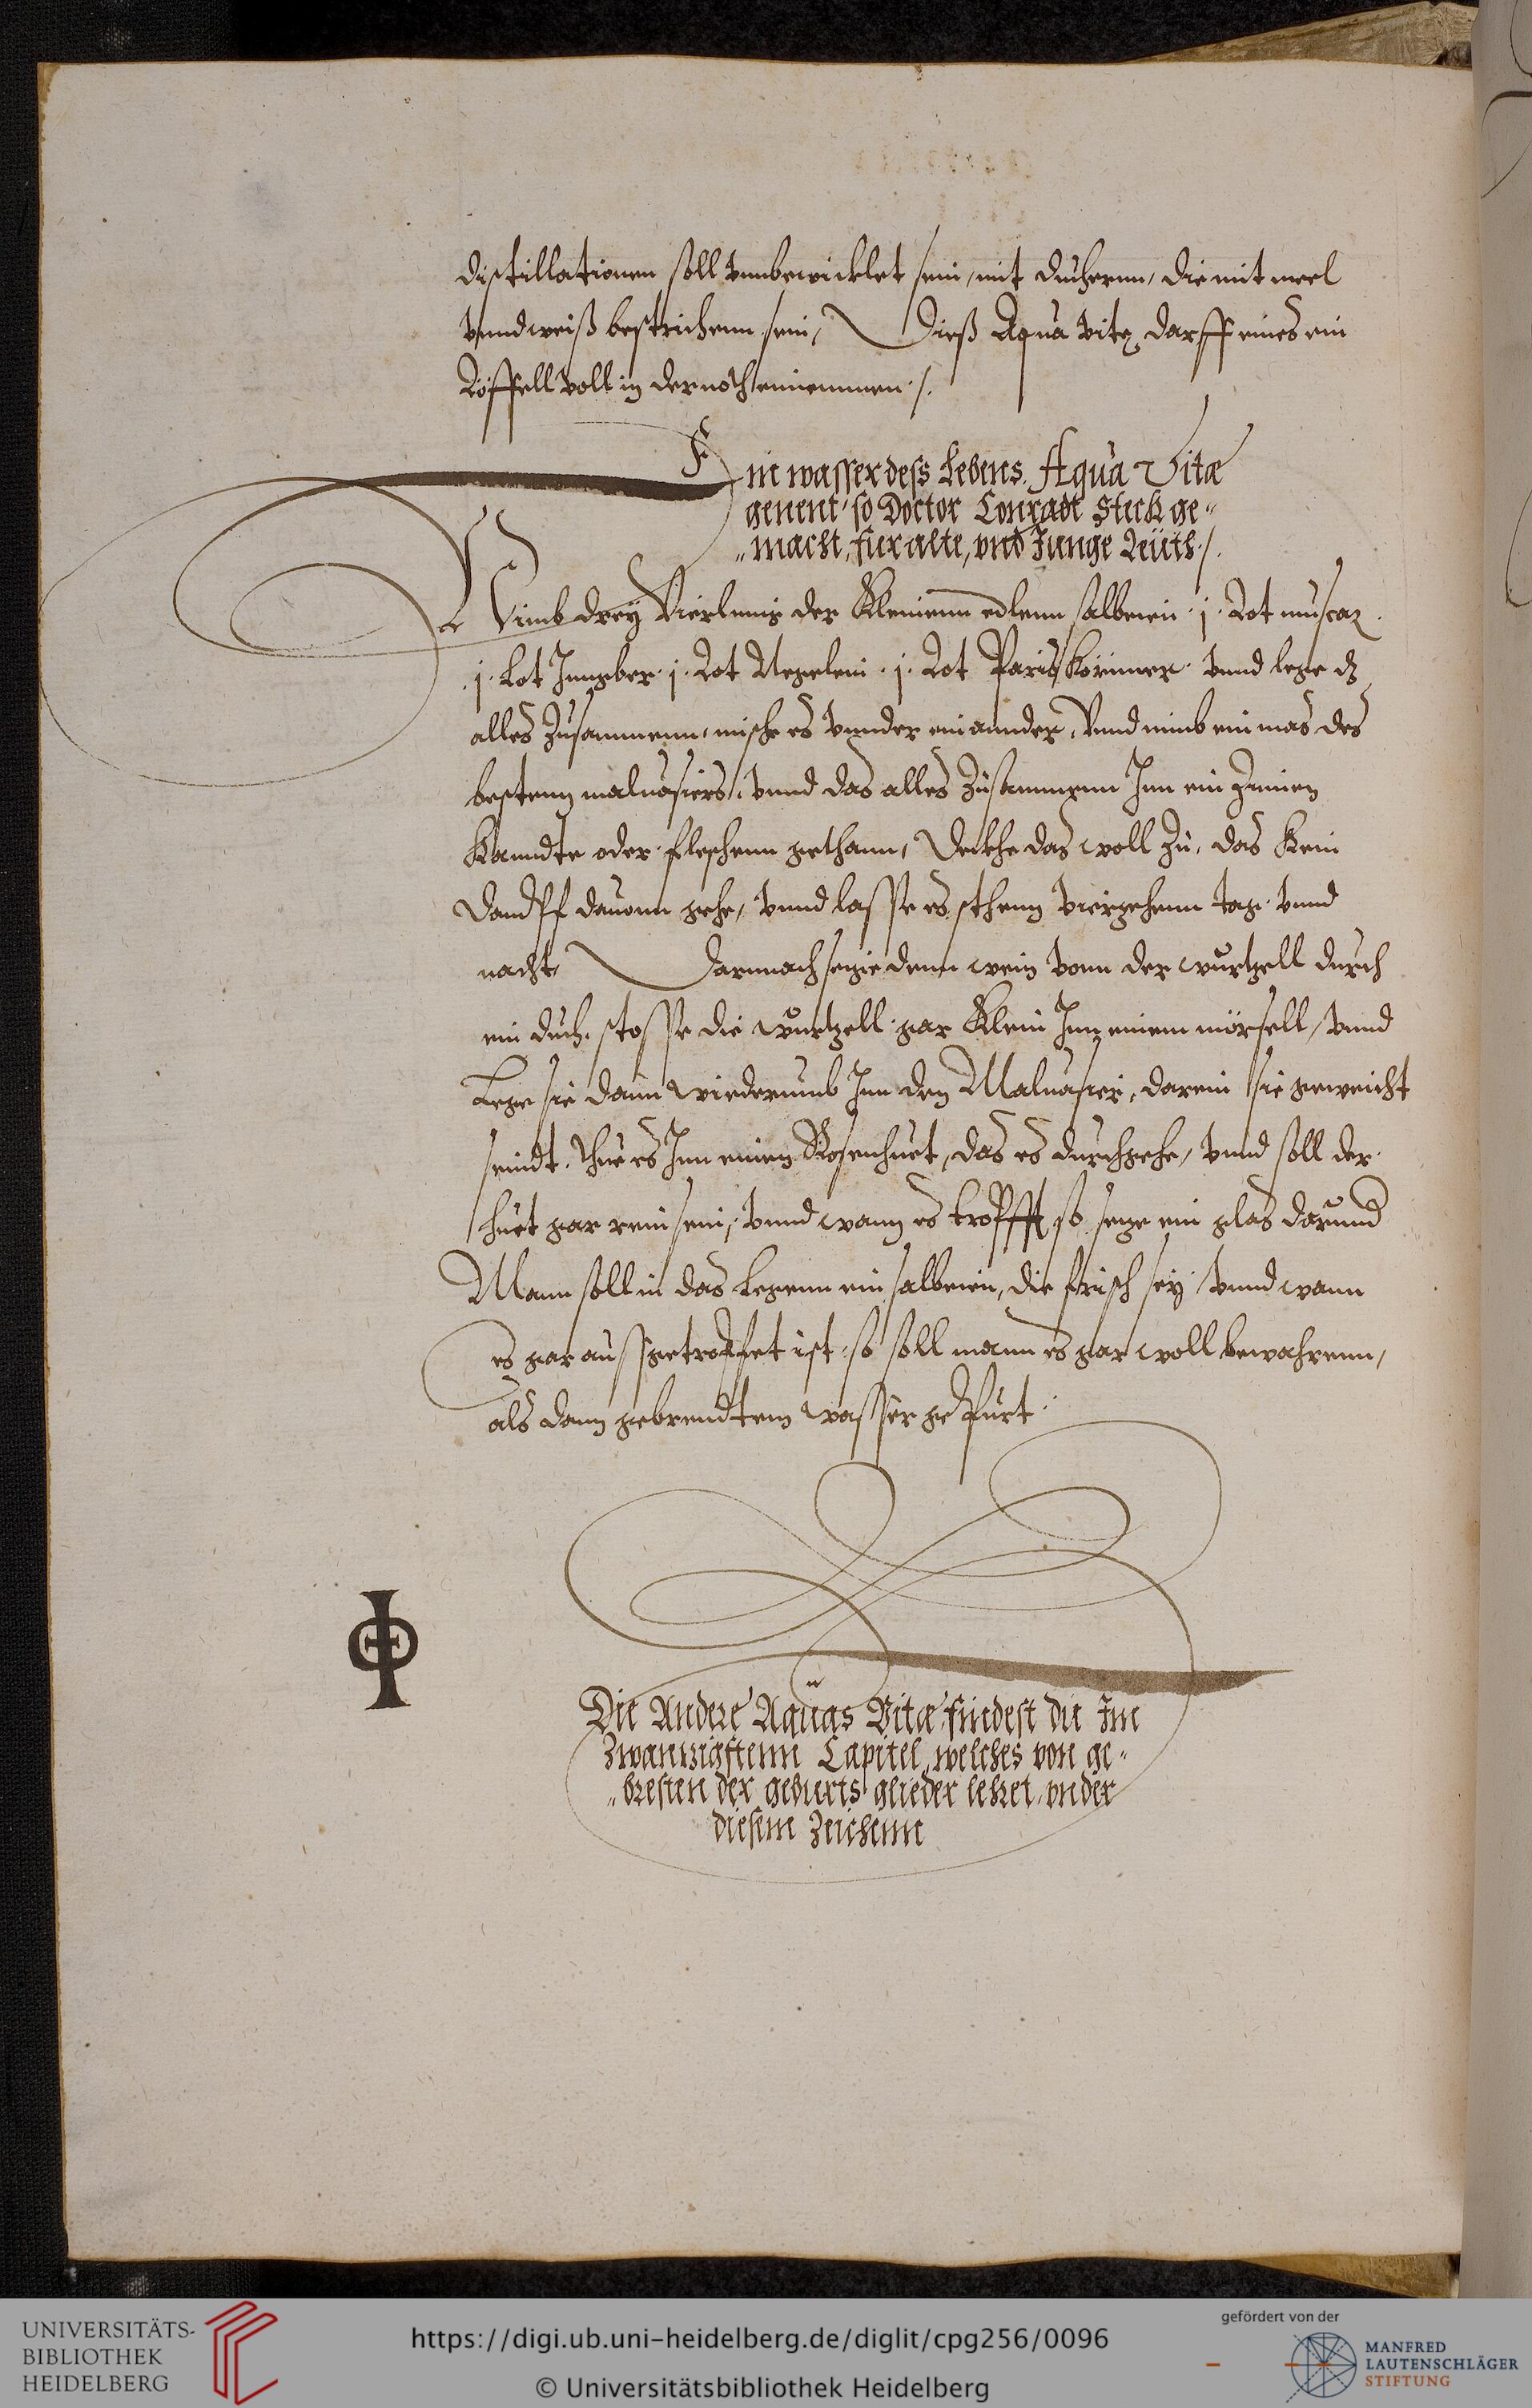 distillationen soll vmbewicklet sein, mit duchernn, die mit meel
vnnd weiß bestrichenn sein, Dieß Aqua vitę darff eines ein
Löffell voll in der noth einnemmen ./.
Ein wasser dess Lebens, Aqua Vitæ
genent, so Doctor Conradt Steck ge„
„macht, fier alte, vnd Junge Leüth ./.
Nimb drey Vierlinng der Kleinenn edlenn salbeien j. Lot muscaz.
. j. Lot Inngber. j. Lot Negelein . j. Lot Paris Körnner. vnnd lege dz
alles zusammenn, mische es vnnder einannder, Vnnd nimb ein mas des
bestenn maluasiers, vnnd das alles zusammenn Inn ein Zinnen
Kanndte oder fleschenn gethann, Deckhe das woll zu, das Kein
Dampff dauonn gehe, vnnd lasse es sthenn vierzehenn tag. vnnd
nacht, Darnnach seye denn wein vonn der wurtzell durch
ein duch, stosse die wurtzell gar Klein Inn einem mörsell, vnnd
Lege sie dann wiederumb Inn den Maluasier, darein sie geweicht
seindt. Thue es Inn einen Rosenhuet, das es durchgehe, vnnd soll der
huet gar rein sein, vnnd wann es tropfft, so seze ein glas darund
Mann soll in das legenn ein salbeien, die frisch sey vnnd wann
es gar aussgetropfet ist, so soll mann es gar woll bewahrenn,
als dann gebrendtem wasser gepürt.
Die Andere Aquas Vitæ, findest du Im
Zwanzigstenn Capitel, welches von ge„
„bresten der geburts glieder lehret, vnder
diesem Zeichenn
UNIVERSITÄTS-
BIBLIOTHEK
HEIDELBERG
https://digi.ub.uni-heidelberg.de/diglit/cpg256/0096
© Universitätsbibliothek Heidelberg
gefördert von der
MANFRED
LAUTENSCHLÄGER
STIFTUNG